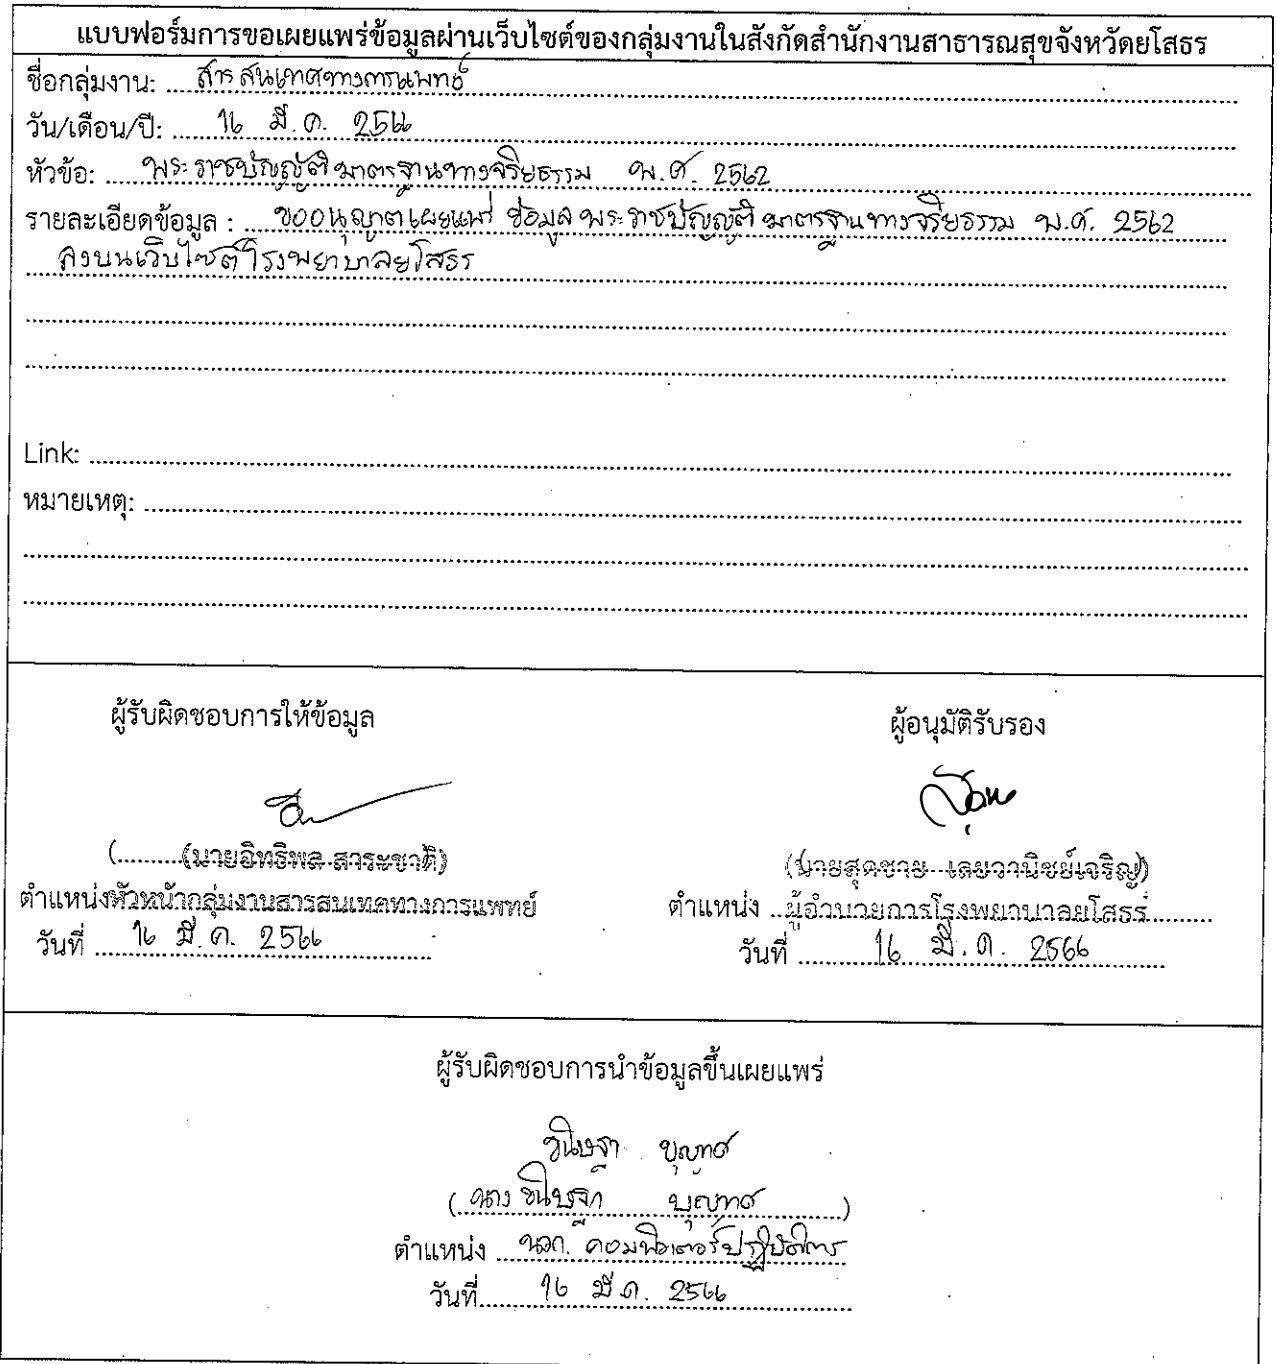 แบบฟอร์มการขอเผยแพร่ข้อมูลผ่านเว็บไซต์ของกลุ่มงานในสังกัดสำนักงานสาธารณสุขจังหวัดยโสธร
ชื่อกลุ่มงาน: สารสนเทศทางการแพทย์
วัน/เดือน/ปี: 16 มี.ค. 2566
หัวข้อ: พระราชบัญญัติมาตรฐานทางจริยธรรม พ.ศ. 2562
รายละเอียดข้อมูล : ขออนุญาตเผยแพร่ ข้อมูล พระราชบัญญัติ มาตรฐานทางจริยธรรม พ.ศ. 2562
ลงบนเว็บไซต์โรงพยาบาลยโสธร
Link:
หมายเหตุ:
ผู้รับผิดชอบการให้ข้อมูล
ผู้อนุมัติรับรอง
(นายอิทธิพล สาระชาติ)
(นายสุดชาย เลยวานิชย์เจริญ)
ตำแหน่งหัวหน้ากลุ่มงานสารสนเทศทางการแพทย์
ตำแหน่ง ผู้อำนวยการโรงพยาบาลยโสธร
วันที่ 16 มี.ค. 2566
วันที่ 16 มี.ค. 2566
ผู้รับผิดชอบการนำข้อมูลขึ้นเผยแพร่
บุญทศ
(นาง บุญทศ)
ตำแหน่ง นวก. คอมพิวเตอร์ปฏิบัติการ
วันที่ 16 มี.ค. 2566